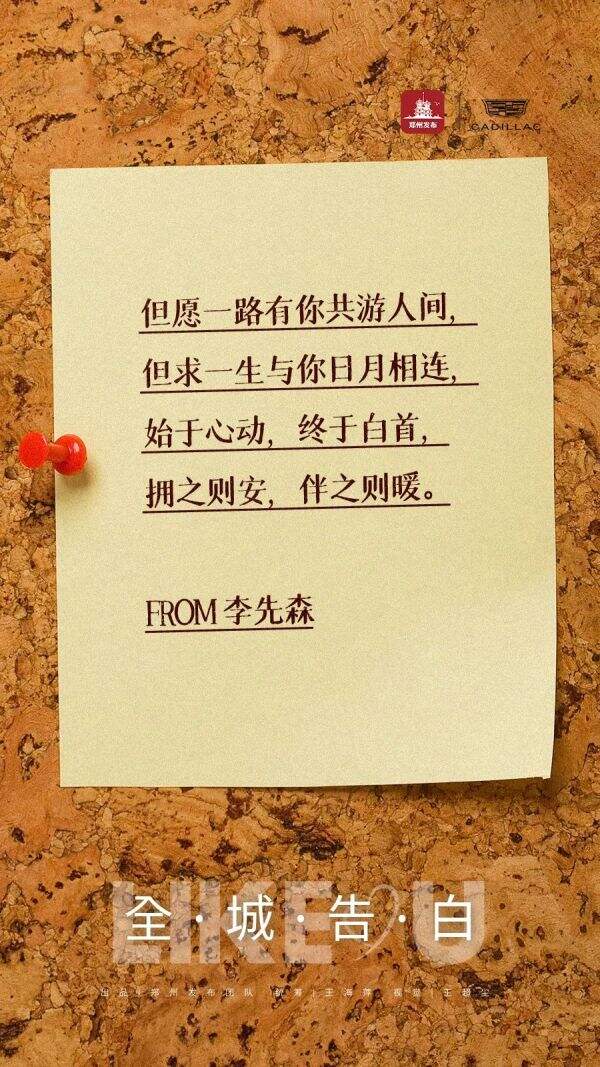 郑州发布
CADILLAC
但愿一路有你共游人间，
但求一生与你日月相连，
始于心动，终于白首，
拥之则安，伴之则暖。
FROM 李先森
LIKE U
全·城·告·白
出品|郑州发布团队 统筹|王海萍 视觉|王超尘